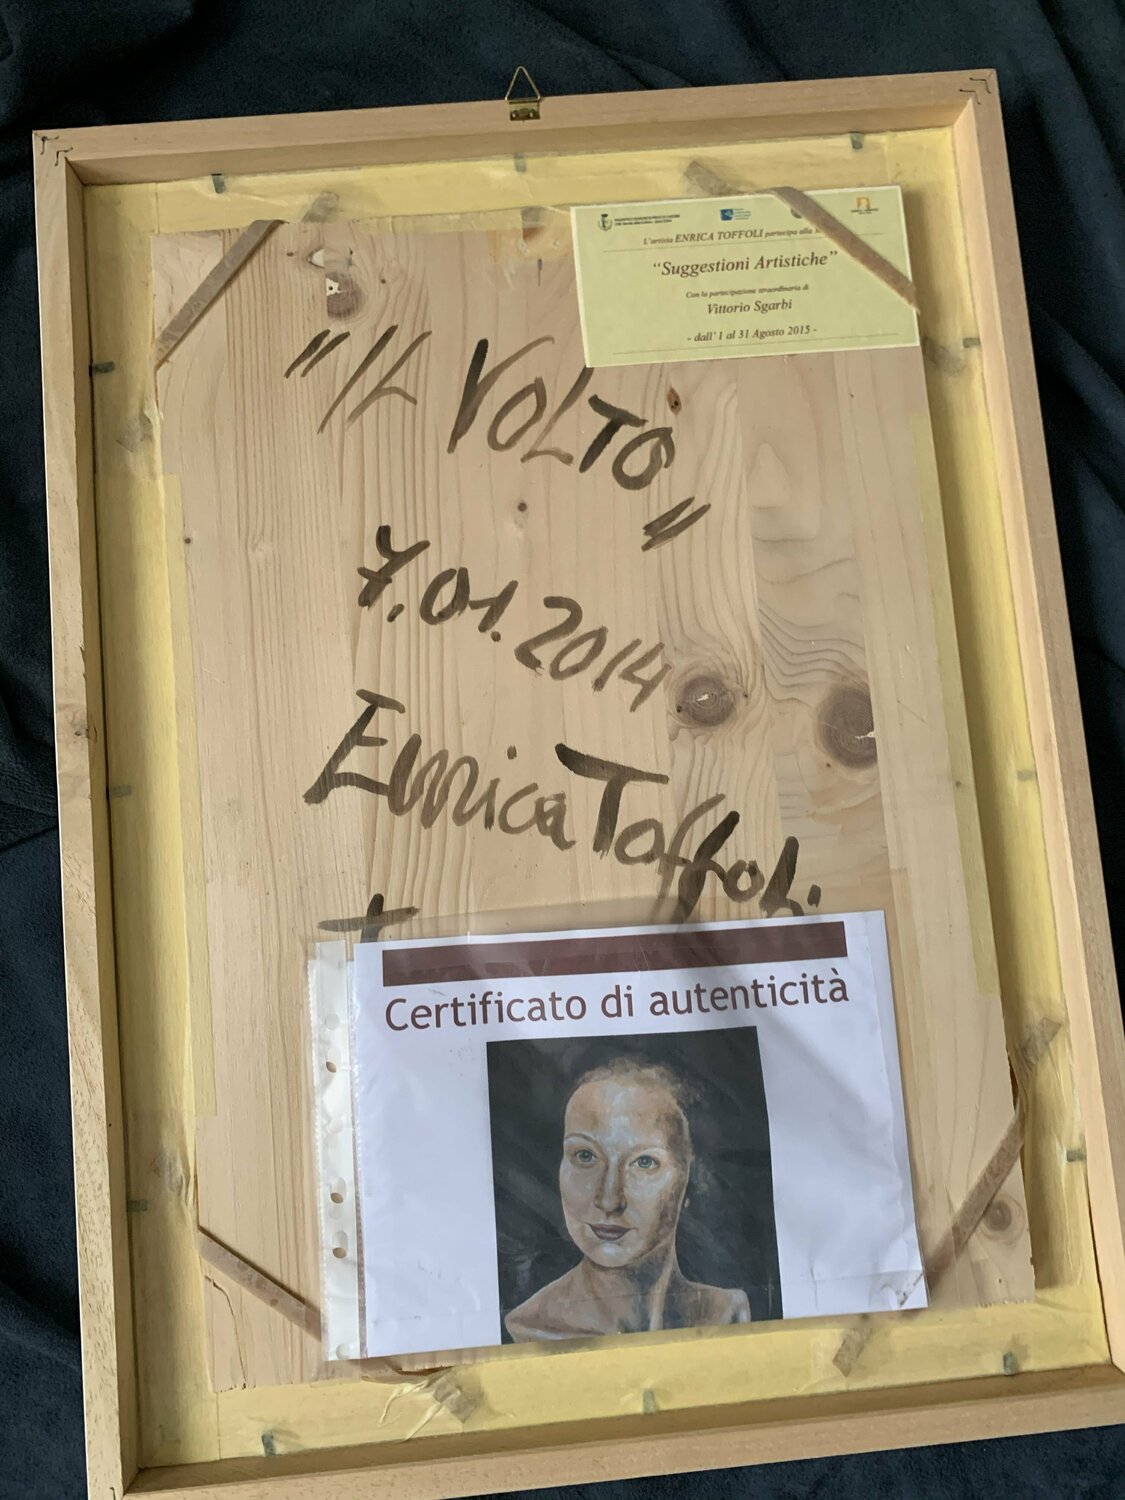 L'artista ENRICA TOFFOLI partecipa alla
“Suggestioni Artistiche”
Con la partecipazione straordinaria di
Vittorio Sgarbi
- dall' 1 al 31 Agosto 2015 -
"IL VOLTO"
7.01.2014
Enrica Toffoli
Certificato di autenticità